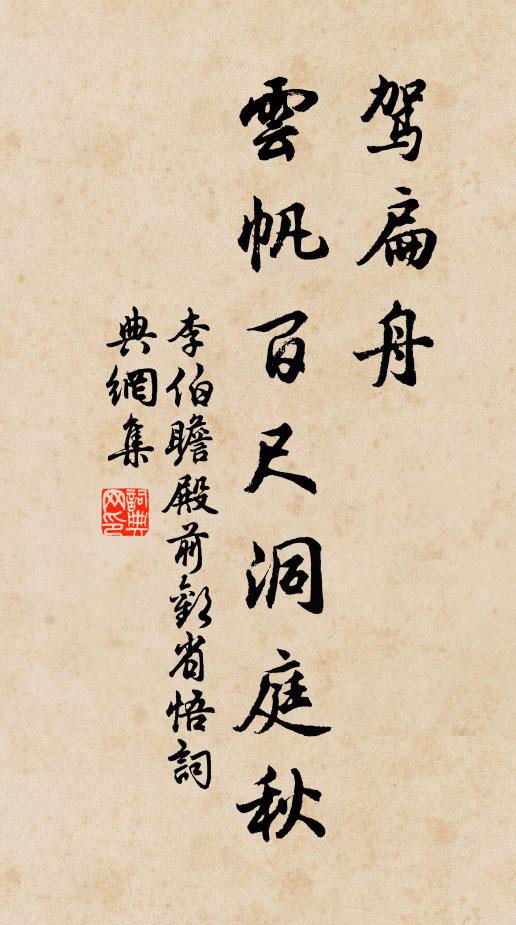 駕扁舟
雲帆百尺洞庭秋
李伯瞻殿前歡省悟詞
典網集
詞典網印